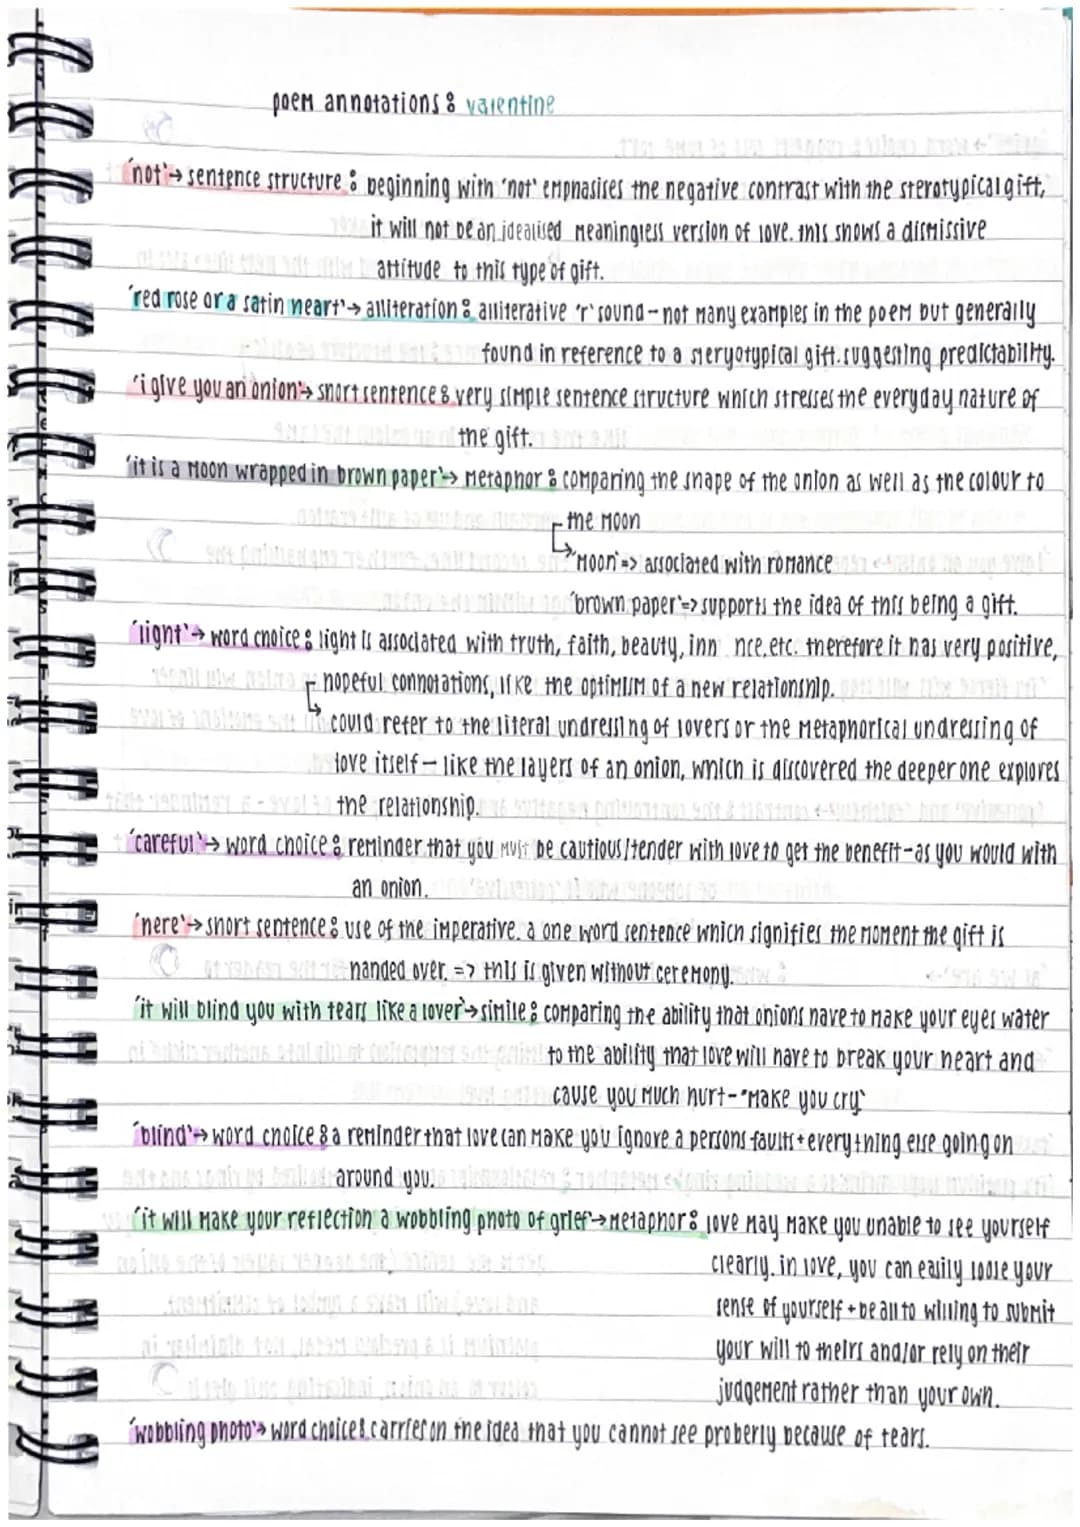 poem annotations : valentine
'not' → sentence structure : beginning with 'not' emphasises the negative contrast with the sterotypical gift,
it will not be an idealised meaningless version of love. this shows a dismissive
attitude to this type of gift.
'red rose or a satin heart' → alliteration : alliterative 'r' sound - not many examples in the poem but generally
found in reference to a steryotypical gift. suggesting predictability.
'i give you an onion' → short sentence : very simple sentence structure which stresses the everyday nature of
the gift.
'it is a moon wrapped in brown paper' → metaphor : comparing the shape of the onion as well as the colour to
the moon
↳ 'moon' => associated with romance
'brown paper' => supports the idea of this being a gift.
'light' → word choice : light is associated with truth, faith, beauty, inn nce, etc. therefore it has very positive,
hopeful connotations, like the optimism of a new relationship.
↳ could refer to the literal undressing of lovers or the metaphorical undressing of
love itself - like the layers of an onion, which is discovered the deeper one explores
the relationship.
'careful' → word choice : reminder that you must be cautious/tender with love to get the benefit - as you would with
an onion.
'here' → short sentence : use of the imperative. a one word sentence which signifies the moment the gift is
handed over. => this is given without ceremony.
'it will blind you with tears like a lover' → simile : comparing the ability that onions have to make your eyes water
to the ability that love will have to break your heart and
cause you much hurt - "make you cry"
'blind' → word choice : a reminder that love can make you ignore a persons faults + everything else going on
around you.
'it will make your reflection a wobbling photo of grief' → metaphor : love may make you unable to see yourself
clearly. in love, you can easily loose your
sense of yourself + be all to willing to submit
your will to theirs and/or rely on their
judgement rather than your own.
'wobbling photo' → word choice : carries on the idea that you cannot see properly because of tears.